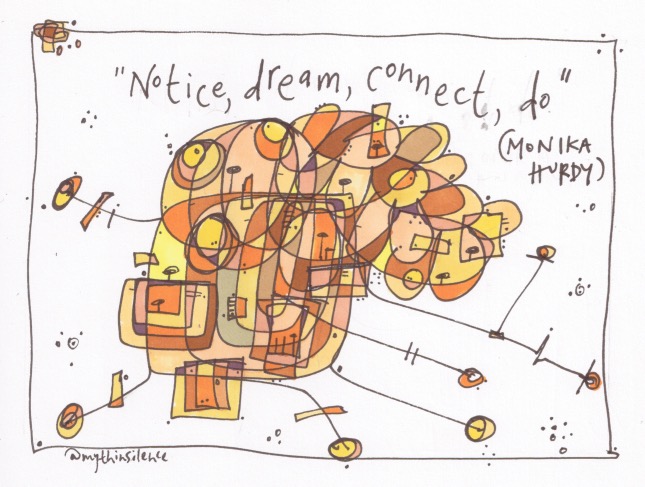 "Notice, dream, connect, do"
(MONIKA
HURDY)
@mythinsilence